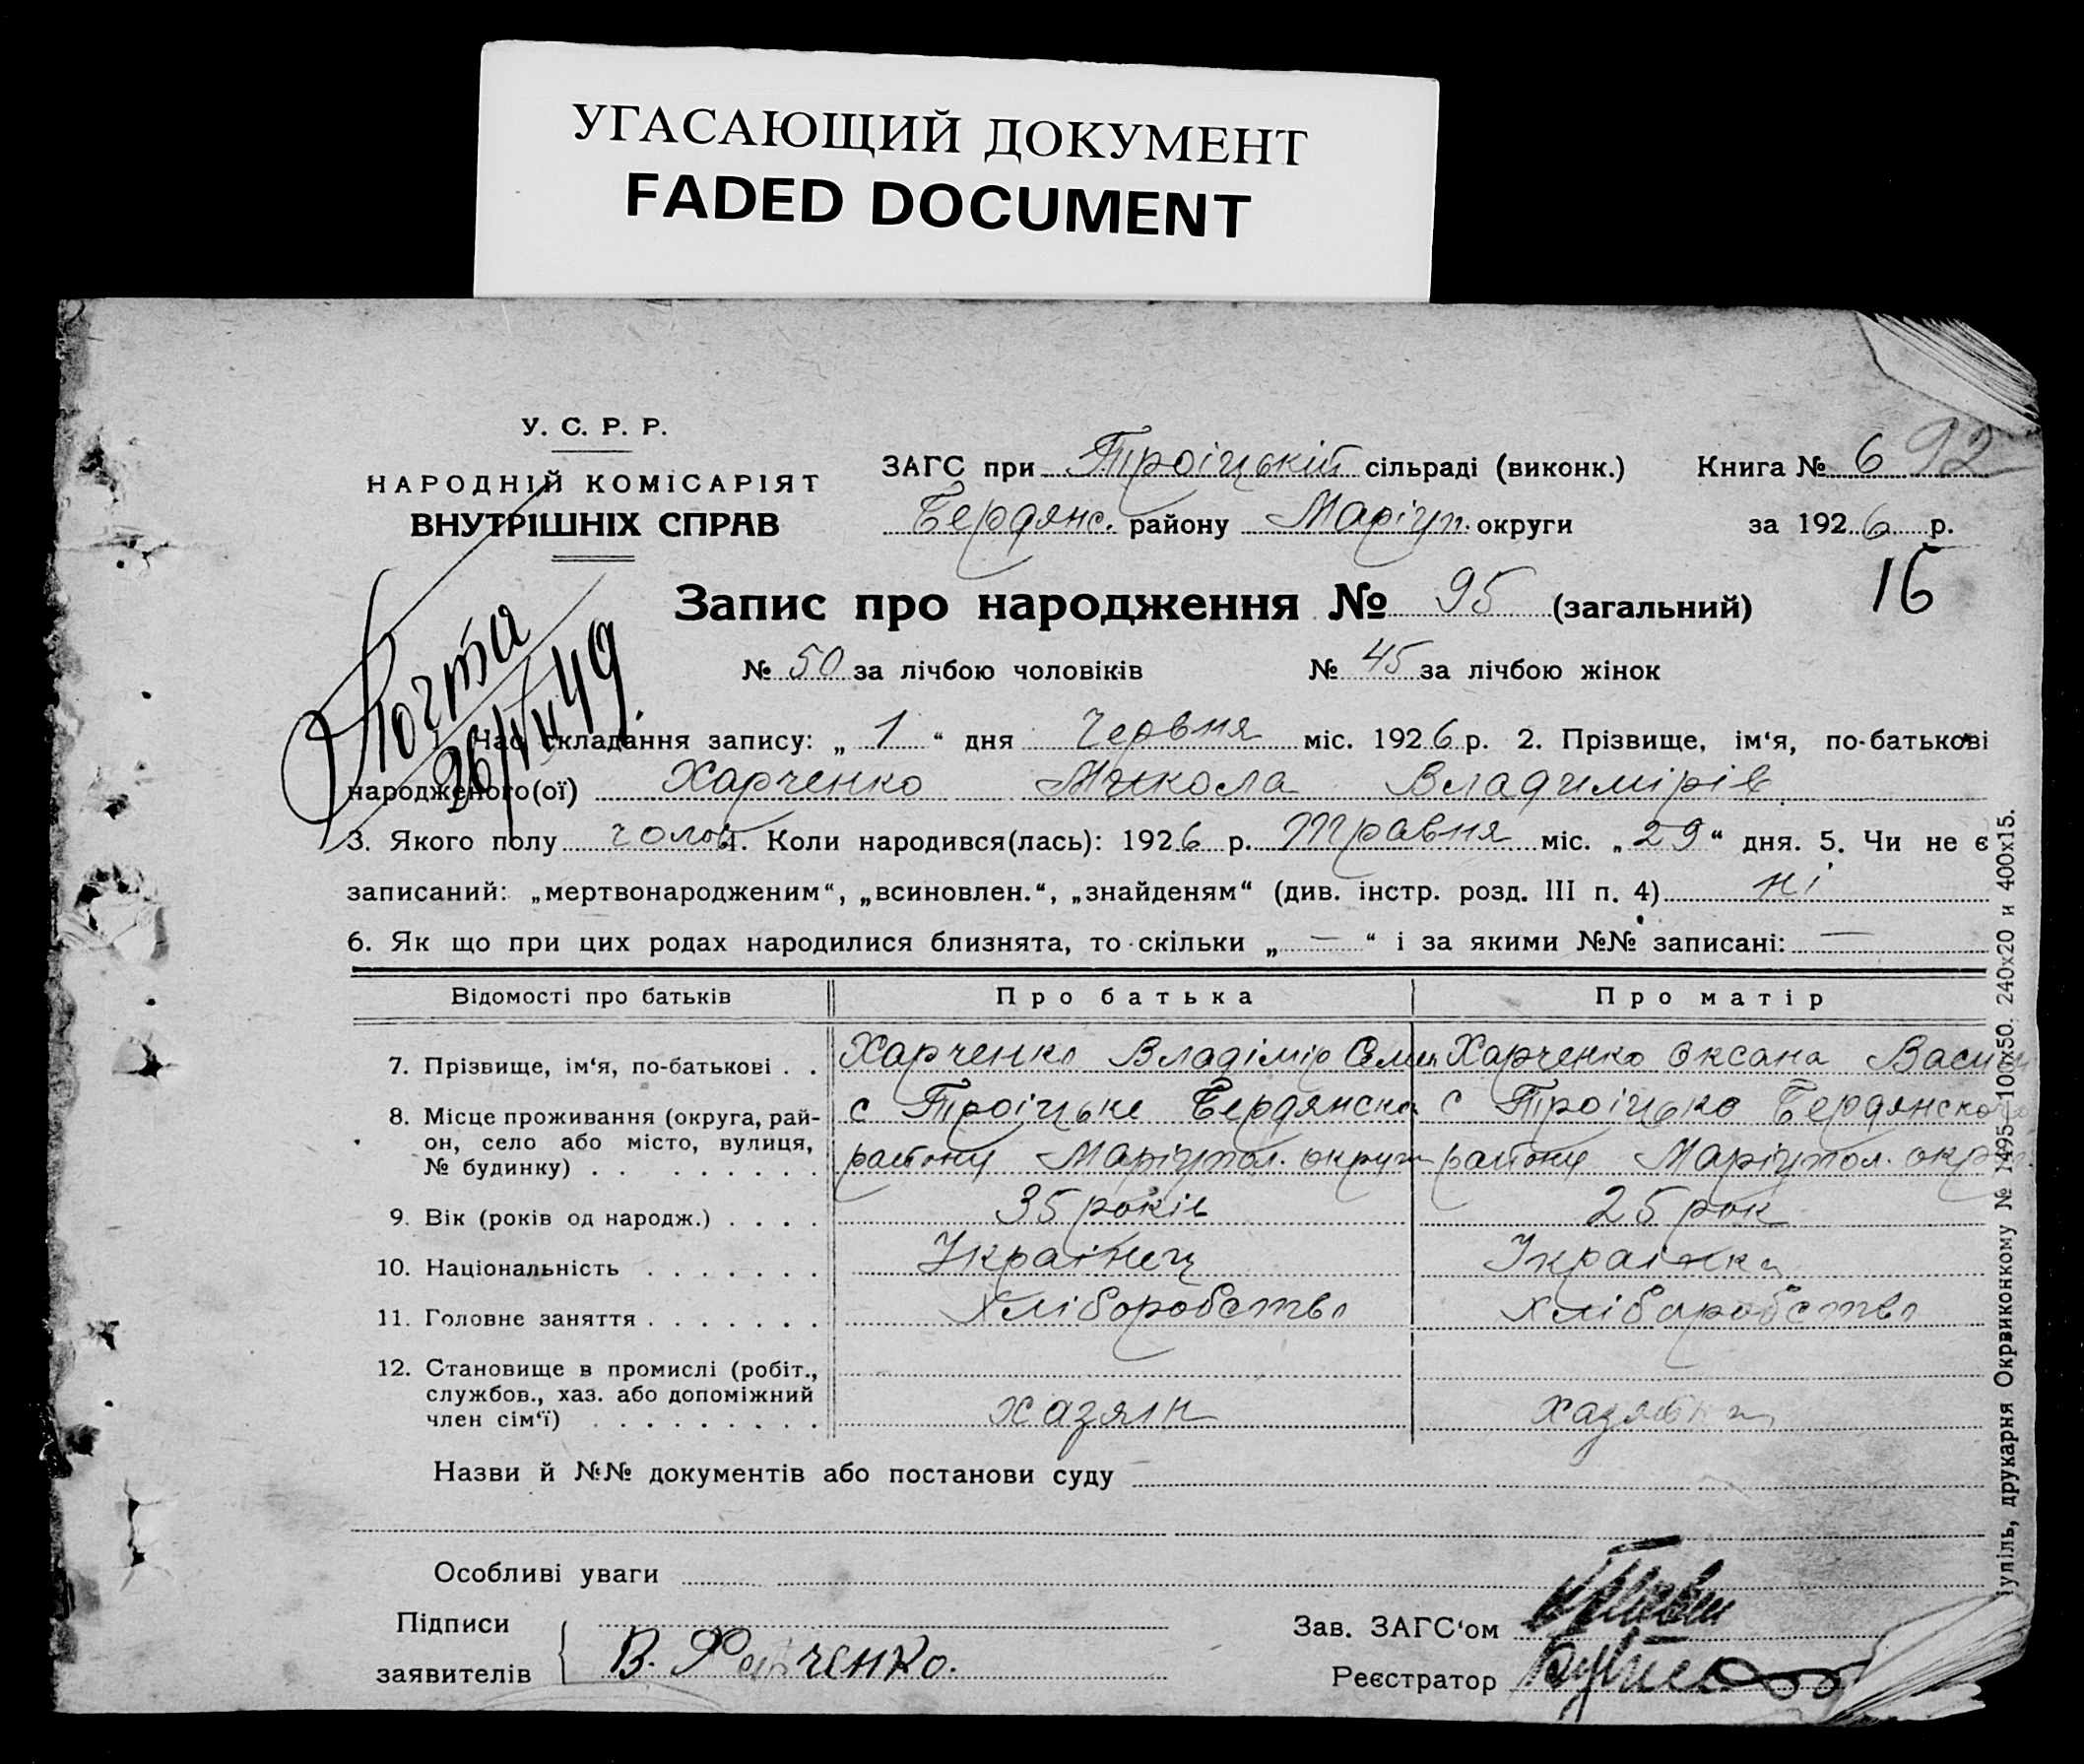 УГАСАЮЩИЙ ДОКУМЕНТ
FADED DOCUMENT
У. С. Р. Р.
НАРОДНІЙ КОМІСАРІЯТ
ВНУТРІШНІХ СПРАВ
ЗАГС при Троіцькій сільраді (виконк.) Книга № 6 92
Бердянс. району Маріуп. округи за 1926 р.
16
Запис про народження № 95 (загальний)
№ 50 за лічбою чоловіків № 45 за лічбою жінок
Почта
26/IV 49.
Час складання запису: „ 1 “ дня Червня міс. 1926 р. 2. Прізвище, ім‘я, по-батькові
народженого(ої) Харченко Микола Владимірів
3. Якого полу чолов. Коли народився(лась): 1926 р. Травня міс. „ 29 “ дня. 5. Чи не є
записаний: „мертвонародженим“, „всиновлен.“, „знайденям“ (див. інстр. розд. III п. 4) ні
6. Як що при цих родах народилися близнята, то скільки „ — “ і за якими №№ записані: —
Відомості про батьків Про батька Про матір
7. Прізвище, ім‘я, по-батькові . . Харченко Владімір Семен Харченко Оксана Васил
8. Місце проживання (округа, рай- с Троіцьке Бердянско с Троіцько Бердянско
он, село або місто, вулиця,
№ будинку) . . . . . . . району Маріупол. округи району Маріупол. окр
9. Вік (років од народж.) . . . . 35 років 25 рок
10. Національність . . . . . . . Украінец Украінка
11. Головне заняття . . . . . . . Хліборобство Хліборобство
12. Становище в промислі (робіт.,
службов., хаз. або допоміжний
член сім‘ї) . . . . . . . . хазяін
Назви й №№ документів або постанови суду
Особливі уваги
Підписи
заявителів В. Харченко.
Зав. ЗАГС‘ом
Реєстратор
уліль, друкарня Окрвиконкому № 1495—100х50. 240х20 и 400х15.